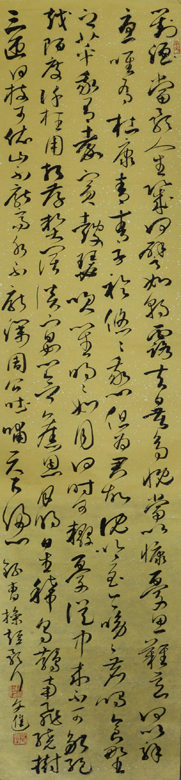 對酒當歌人生幾何譬如朝露去日苦多慨當以慷憂思難忘何以解
憂唯有杜康青青子衿悠悠我心但為君故沈吟至今呦呦鹿鳴食野
之苹我有嘉賓鼓瑟吹笙明明如月何時可掇憂從中來不可斷絕
越陌度阡枉用相存契闊談讌心念舊恩月明星稀烏鵲南飛繞樹
三匝何枝可依山不厭高水不厭深周公吐哺天下歸心 錄曹操短歌行